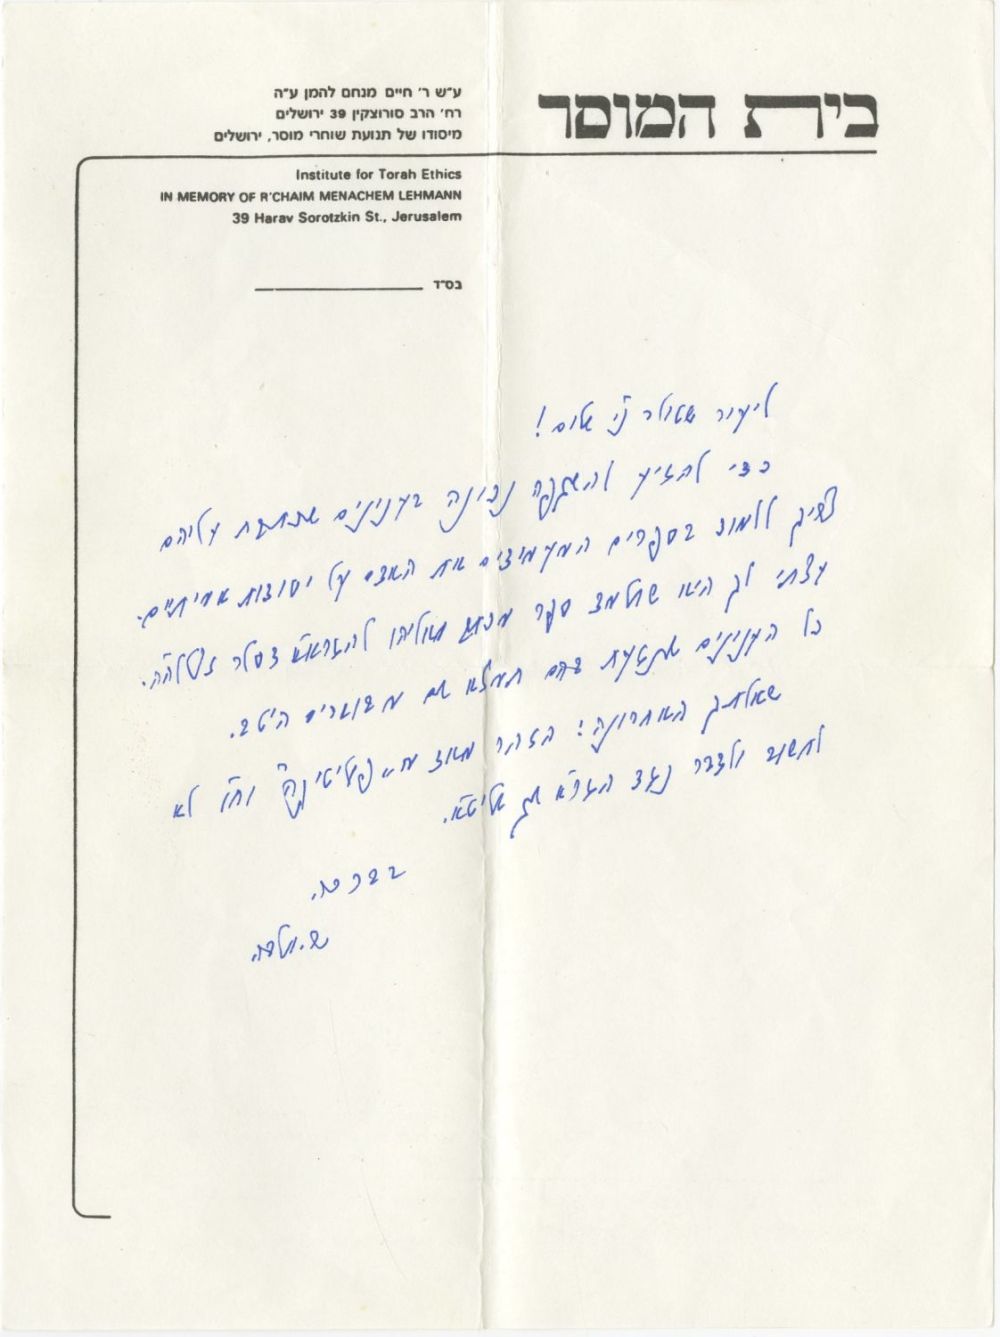 בית המוסר
ע״ש ר׳ חיים מנחם להמן ע״ה
רח׳ הרב סורוצקין 39 ירושלים
מיסודו של תנועת שוחרי מוסר, ירושלים
Institute for Torah Ethics
IN MEMORY OF R'CHAIM MENACHEM LEHMANN
39 Harav Sorotzkin St., Jerusalem
בס״ד
שלום!
כדי להגיע להשקפה נכונה בענינים שכתבת עליהם
צריך ללמוד בספרים המעמידים את האדם על יסודות אמיתיים.
עצתי לך היא שתלמד ספר מכתב מאליהו להגרא״א דסלר זצללה״ה.
כל הענינים שנגעת בהם תמצא שם מבוארים היטב.
שאלתך האחרונה: הזהר מאוד מ„פוליטיקה" וח״ו לא
לחשוב ולדבר נגד הגרא״מ שך שליט״א.
בברכה
ש. וולבה